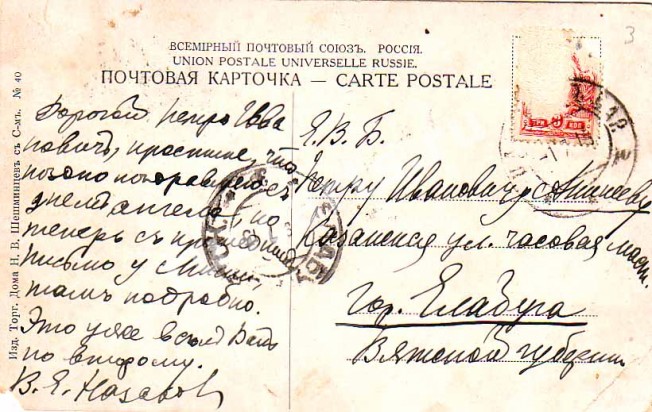 ВСЕМІРНЫЙ ПОЧТОВЫЙ СОЮЗЪ. РОССІЯ.
UNION POSTALE UNIVERSELLE RUSSIE.
ПОЧТОВАЯ КАРТОЧКА — CARTE POSTALE
3
ТРИ 3 КОП
Изд. Торг. Дома Н. В. Шепминцевъ съ С-мъ. № 40
Дорогой Петръ Ива
новичъ, простите, что
поздно поздравляю съ
днемъ ангела, но
теперь съ
письмо у
тамъ подробно.
Это уже
по второму.
В. Я. Назаровъ
Я. В. Б.
Петру Ивановичу
Казанская ул. часовая маст.
гор. Елабуга
Вятской губерніи